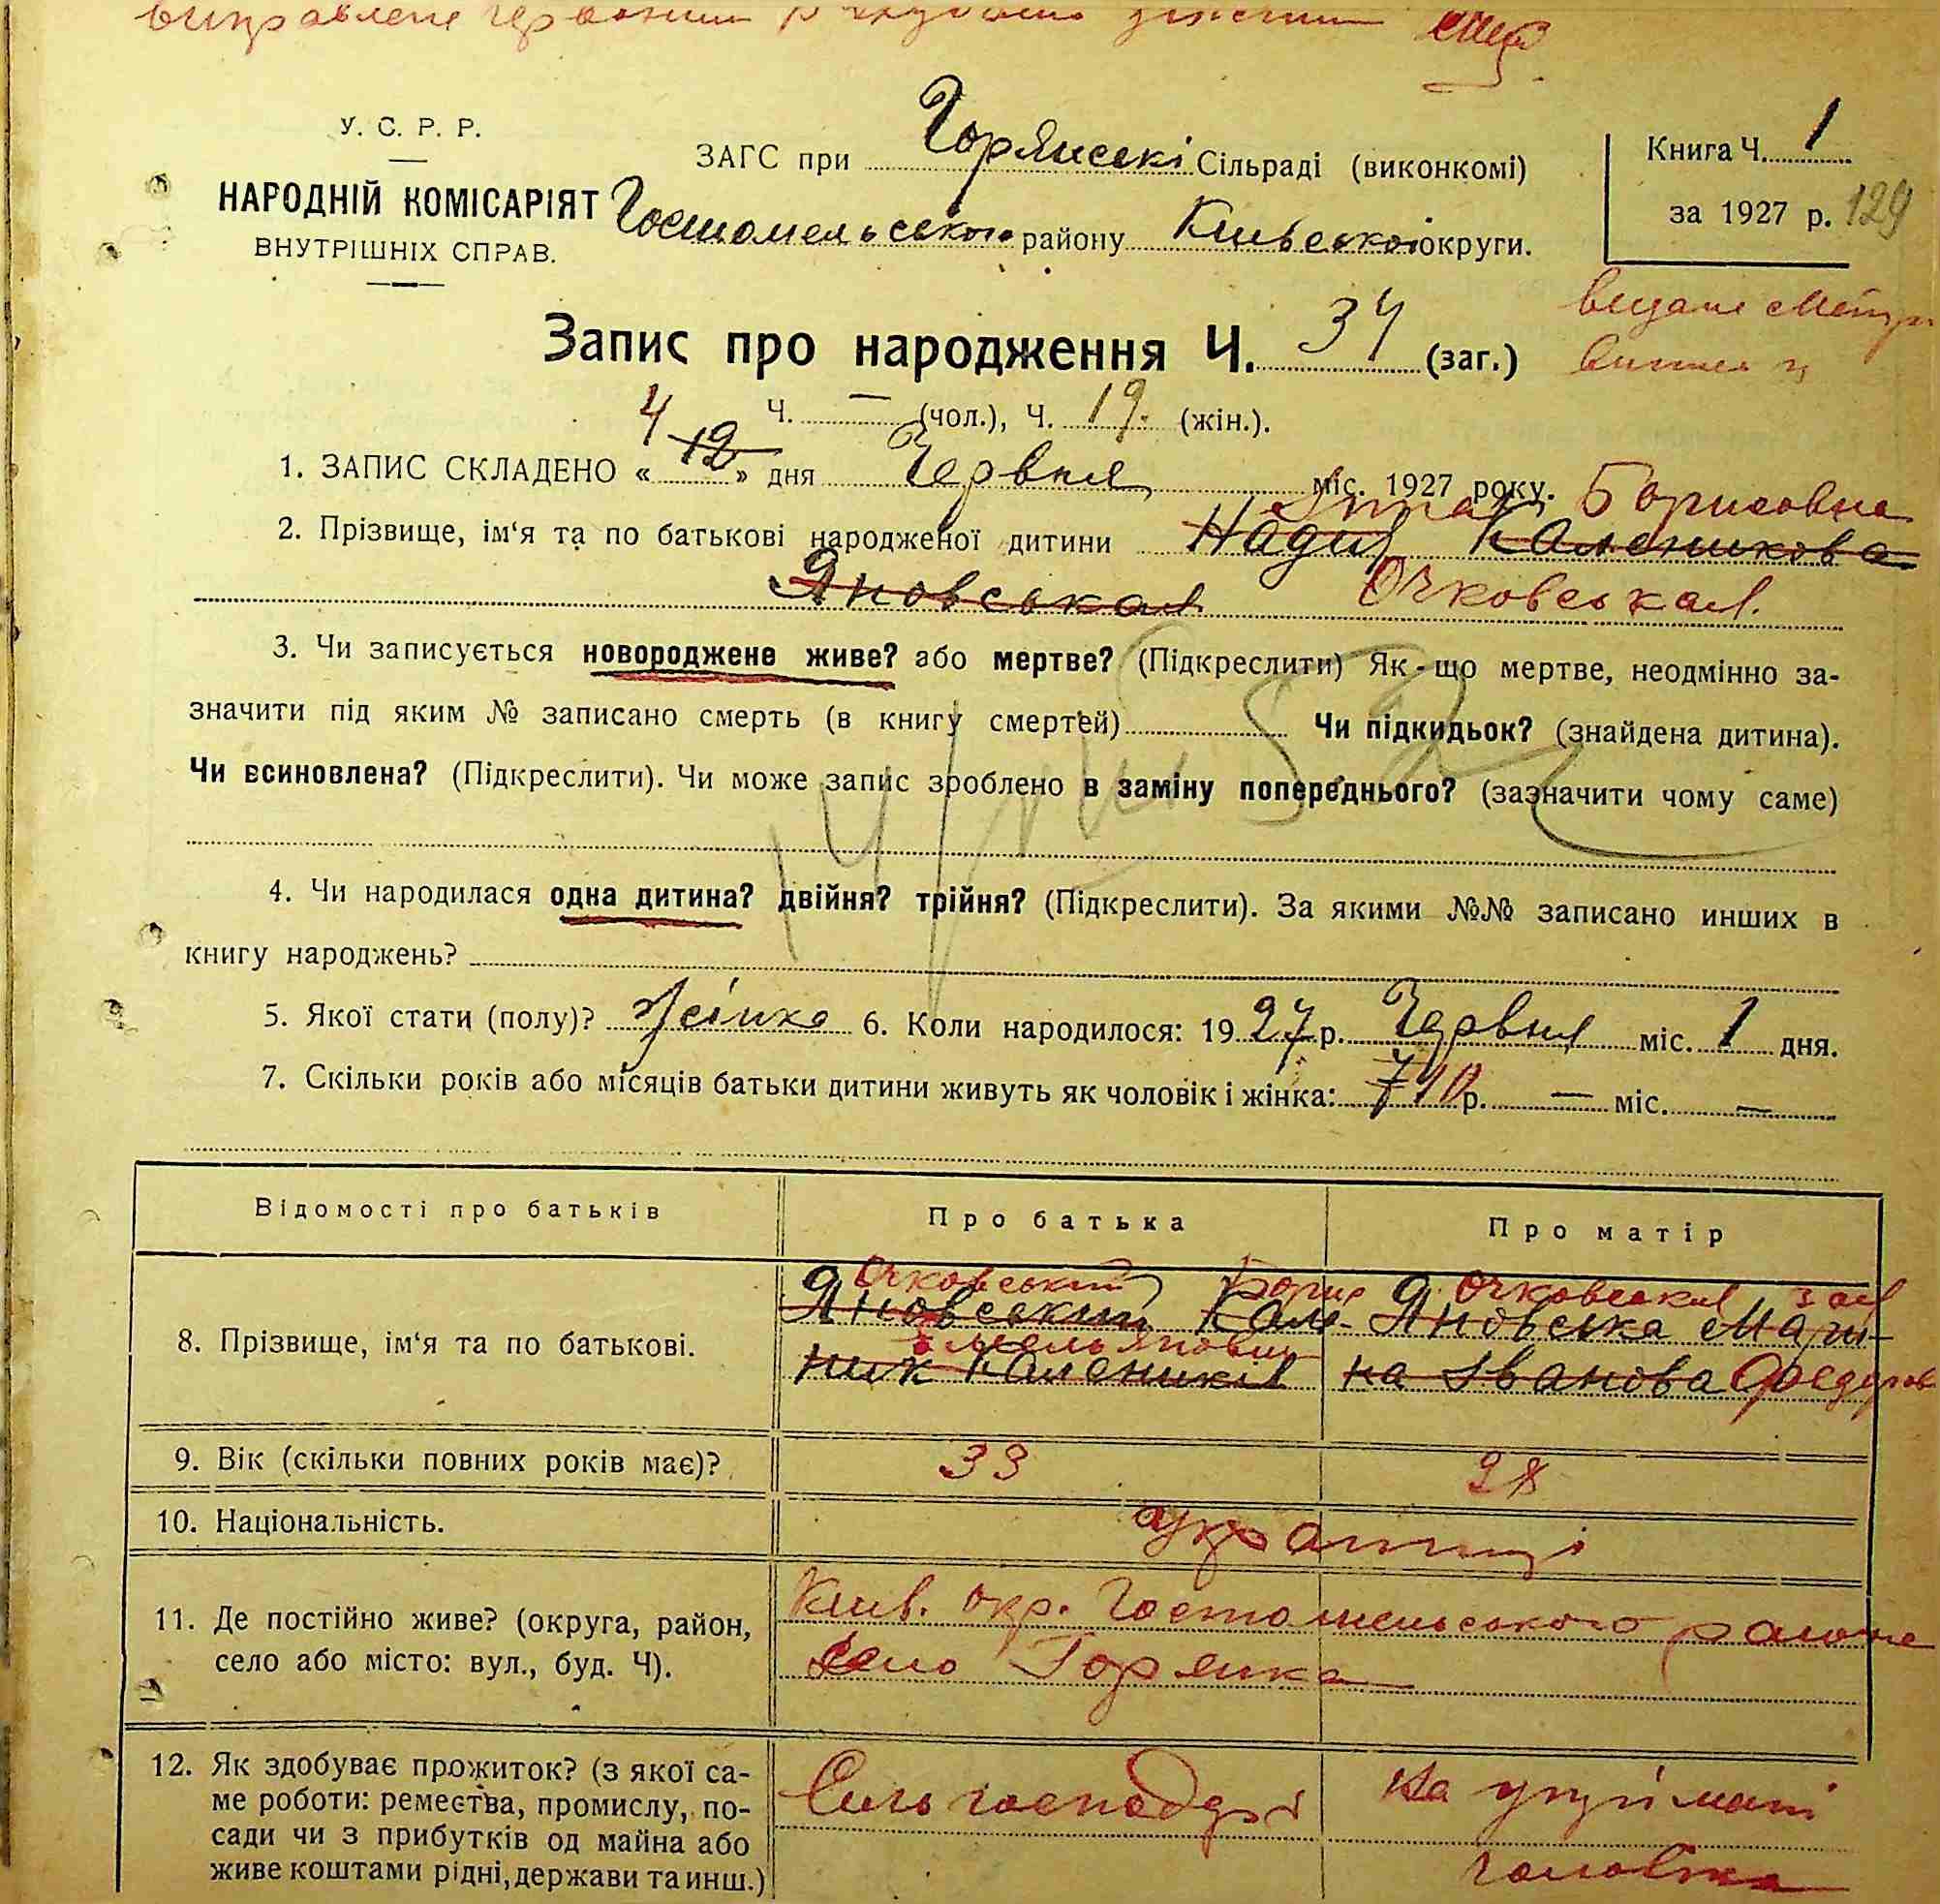 виправлене червоним
У. С. Р. Р.
НАРОДНІЙ КОМІСАРІЯТ
ВНУТРІШНІХ СПРАВ.
ЗАГС при Горянські Сільраді (виконкомі)
Гостомельського району Київської округи.
Книга Ч. 1
за 1927 р. 129
видане
Запис про народження Ч. 34 (заг.)
Ч. — (чол.), Ч. 19. (жін.).
4
1. ЗАПИС СКЛАДЕНО « 12 » дня Червня міс. 1927 року.
Борисовна
2. Прізвище, ім'я та по батькові народженої дитини Надия Каленикова
Яновськая Очковськая.
3. Чи записується новороджене живе? або мертве? (Підкреслити) Як-що мертве, неодмінно за-
значити під яким № записано смерть (в книгу смертей) Чи підкидьок? (знайдена дитина).
Чи всиновлена? (Підкреслити). Чи може запис зроблено в заміну попереднього? (зазначити чому саме)
4. Чи народилася одна дитина? двійня? трійня? (Підкреслити). За якими №№ записано инших в
книгу народжень?
5. Якої стати (полу)? Жінка 6. Коли народилося: 1927 р. Червня міс. 1 дня.
7. Скільки років або місяців батьки дитини живуть як чоловік і жінка: 7 10 р. — міс. —
Відомості про батьків
Про батька
Про матір
8. Прізвище, ім'я та по батькові.
Очковський Борис
Яновський Кале-
Емельянович
ник Калеників
Очковская
Яновська Мари-
на Іванова Федоров
9. Вік (скільки повних років має)? 33 28
10. Національність. українці
11. Де постійно живе? (округа, район,
село або місто: вул., буд. Ч).
Київ. окр. Гостомельського района
село Горянка
12. Як здобуває прожиток? (з якої са-
ме роботи: ремества, промислу, по-
сади чи з прибутків од майна або
живе коштами рідні, держави та инш.)
на
чоловіка